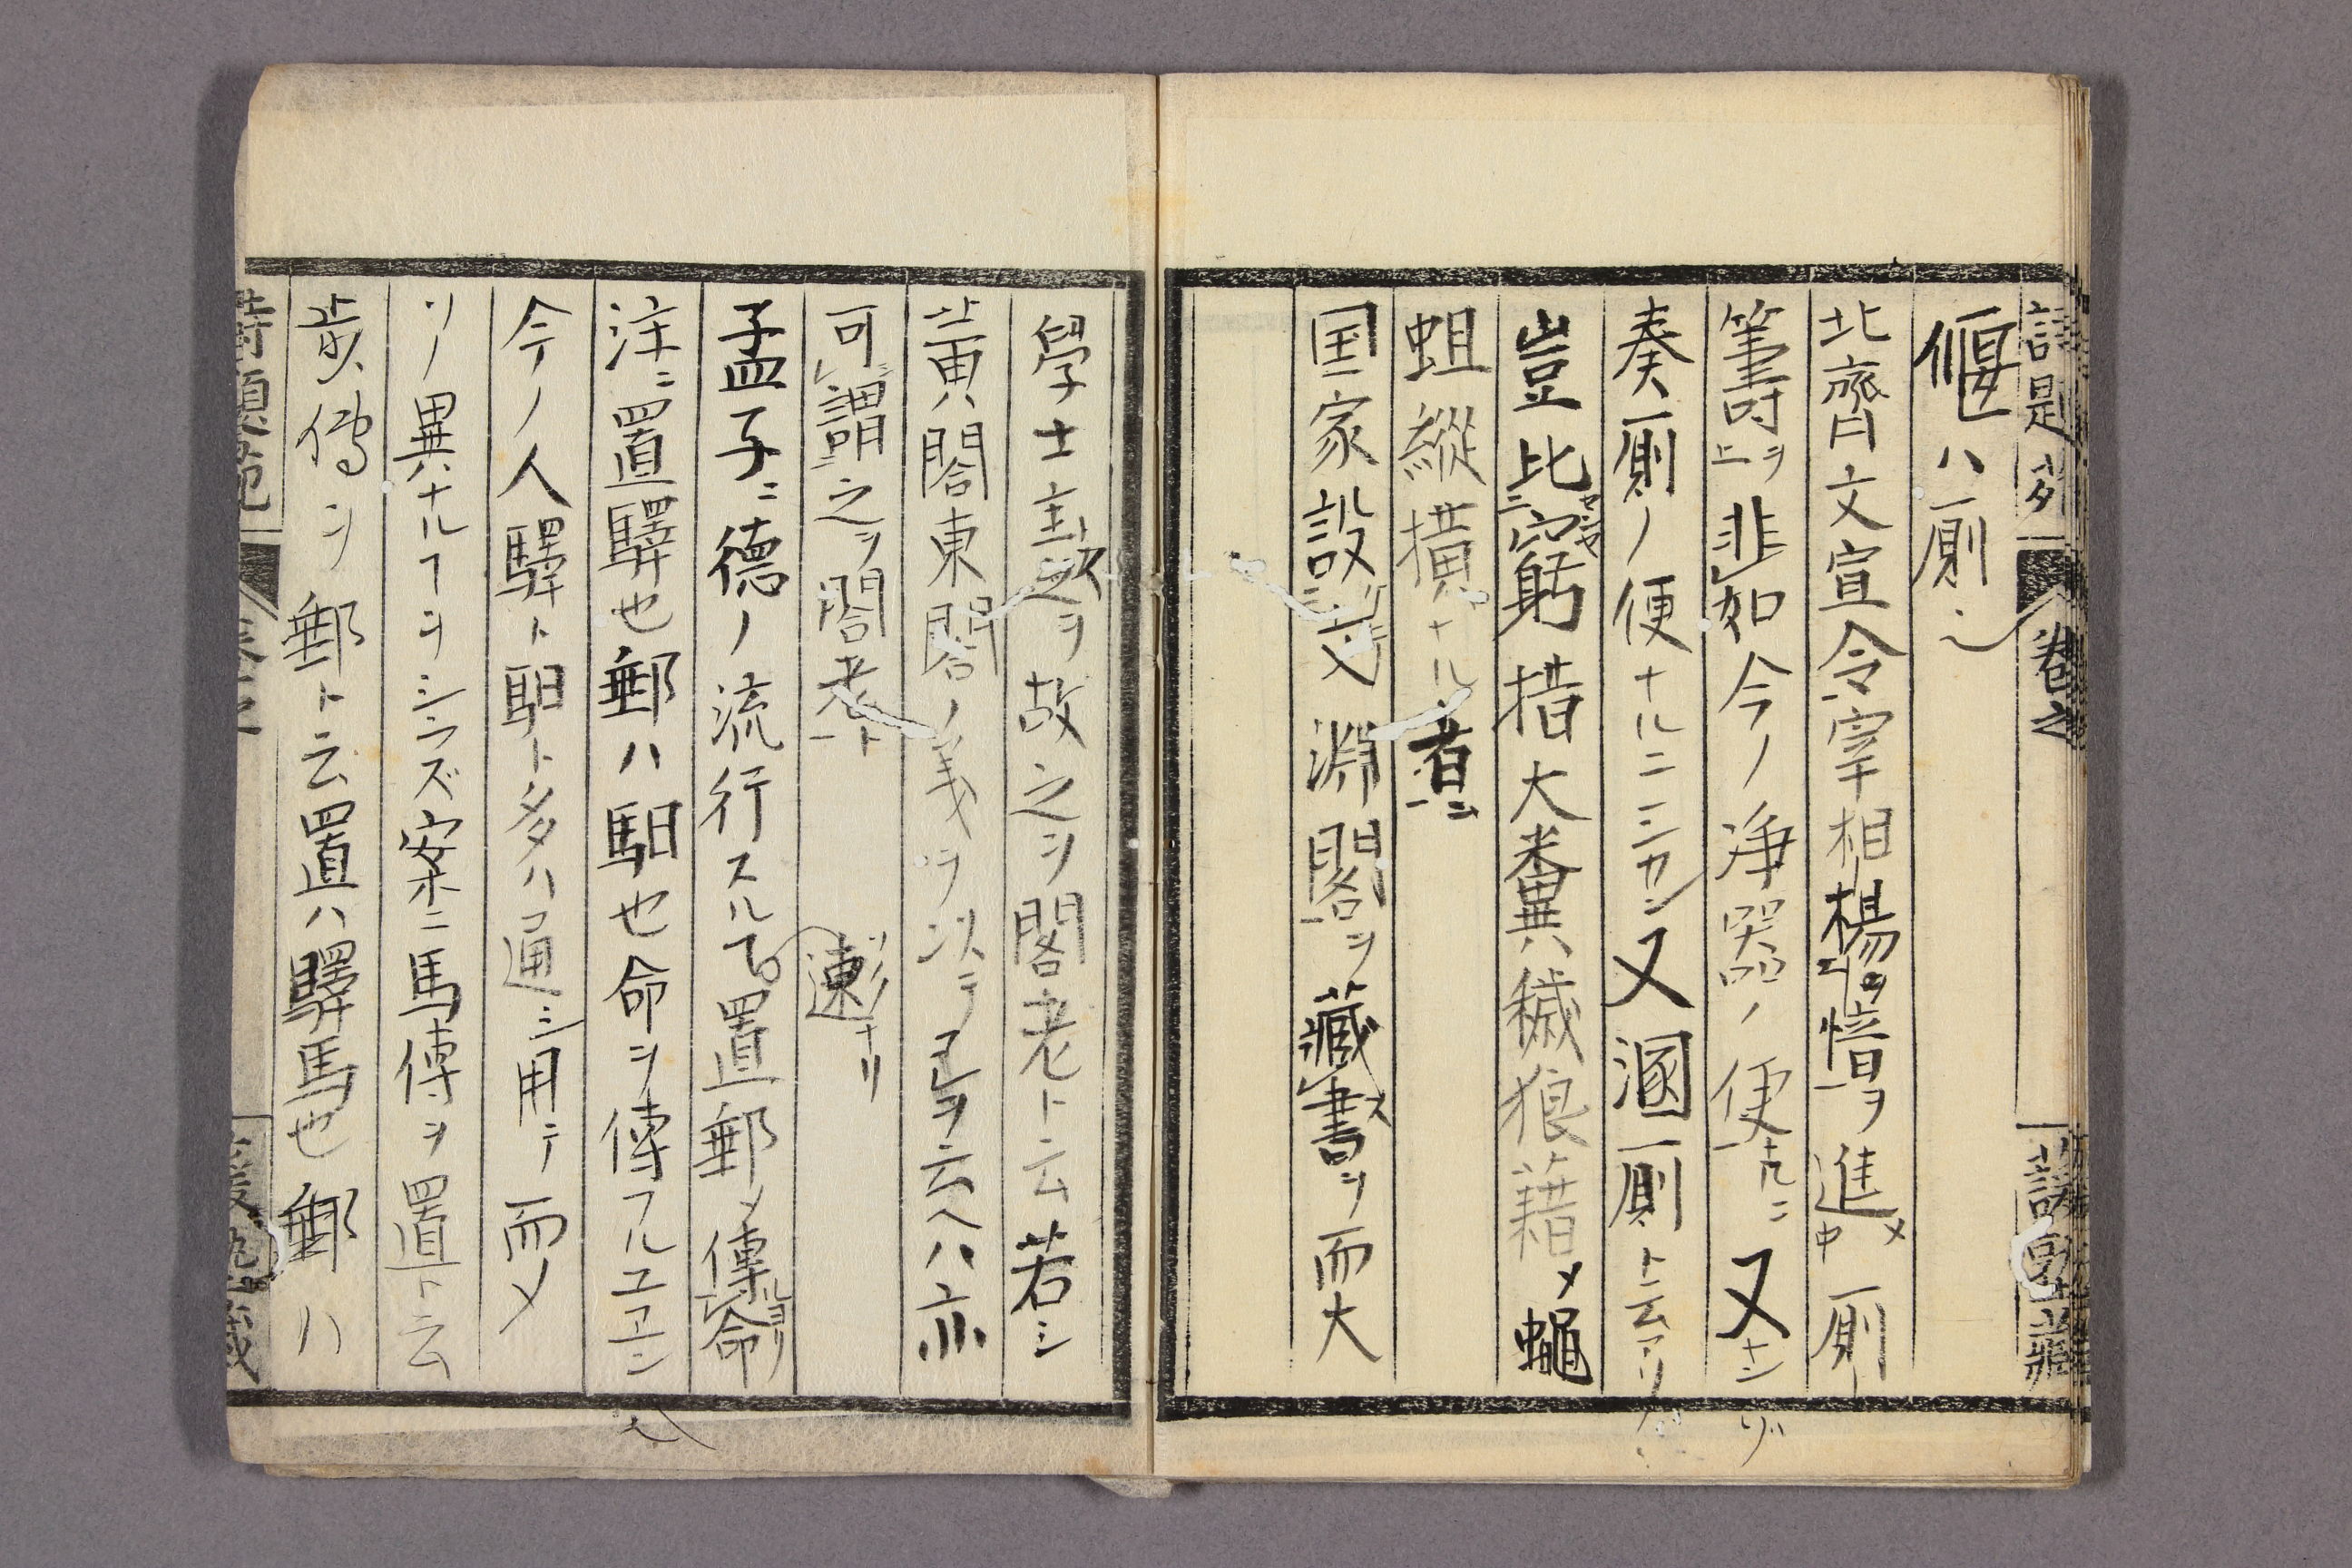 偃ハ厠也
北齊文宣令宰相楊愔ヲ進メ厠
籌ヲ韭如今ノ浄器ノ便ナルニ又ナンゾ
奏厠ノ便ナルニシカン又溷厠ト云アリ
豈比窮措大糞穢狼藉メ蠅
蛆縱横ナル者ニ
国家設文淵閣ヲ藏書ヲ而大
學士主之ヲ故之ヲ閣老ト云若シ
黄閣東閣ノ義ヲ以テ是ヲ云ヘハ亦
可謂之ヲ閣老ト
孟子ニ徳ノ流行スルヿ速ナリ置郵メ傳命ヨリ
注ニ置驛也郵ハ馹也命ヲ傳フルユエン也
今ノ人驛ト馹ト多ハ通シ用テ而メ
ソノ異ナルヿヲシラズ案ニ馬傳ヲ置ト云
歩傳ヲ郵ト云置ハ驛馬也郵ハ